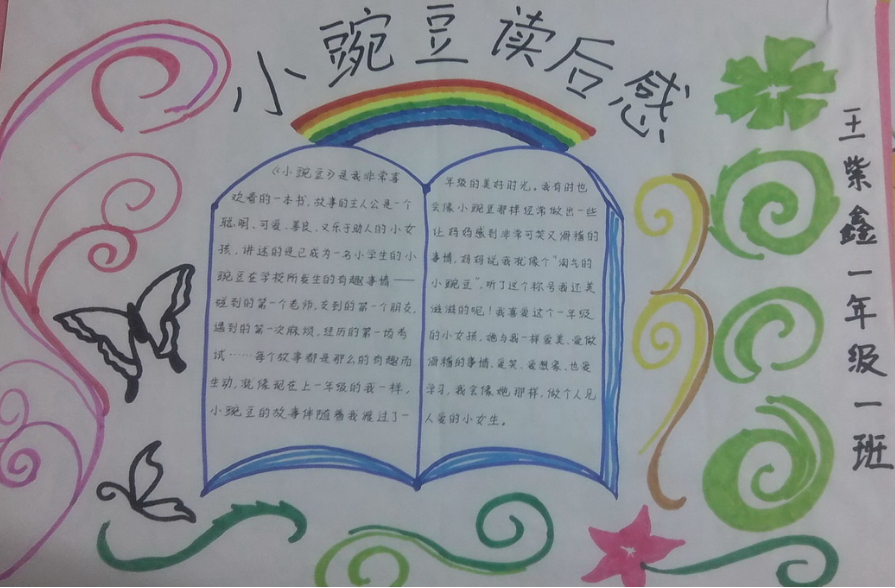 小豌豆读后感
《小豌豆》是我非常喜
欢看的一本书。故事的主人公是一个
聪明、可爱、善良、又乐于助人的小女
孩，讲述的是已成为一名小学生的小
豌豆在学校所发生的有趣事情——
碰到的第一个老师，交到的第一个朋友，
遇到的第一次麻烦，经历的第一场考
试……每个故事都是那么的有趣而
生动。就像现在上一年级的我一样，
小豌豆的故事伴随着我度过了一
年级的美好时光。我有时也
会像小豌豆那样经常做出一些
让妈妈感到非常可笑又滑稽的
事情，妈妈说我就像个“淘气的
小豌豆”，听了这个称号我还美
滋滋的呢！我喜爱这个一年级
的小女孩，她与我一样爱美、爱做
滑稽的事情、爱笑、爱想象、也爱
学习，我会像她那样，做个人见
人爱的小女生。
王紫鑫一年级一班